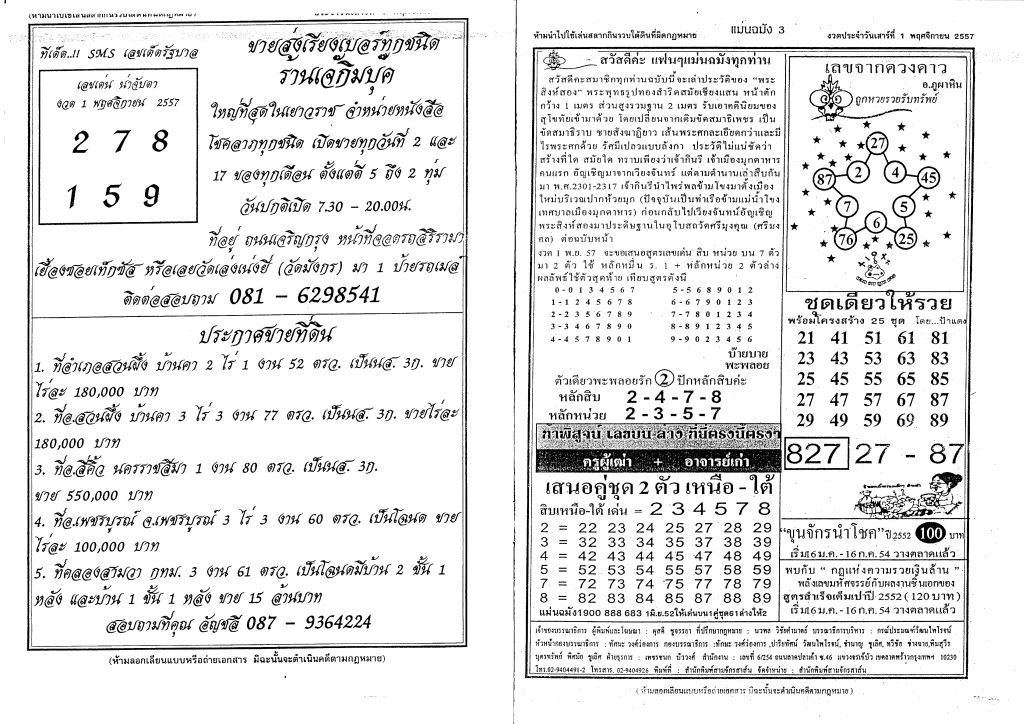 (ห้ามนำไปใช้เล่นสลากกินรวบใต้ดินที่ผิดกฎหมาย)
ทีเด็ด..!! SMS เลขเด็ดรัฐบาล
เลขเด่น น่าจับตา
งวด 1 พฤศจิกายน 2557
2 7 8
1 5 9
ขายส่งเรียงเบอร์ทุกชนิด
ร้านเจ๊กิมบุ๊ค
ใหญ่ที่สุดในเยาวราช จำหน่ายหนังสือ
โชคลาภทุกชนิด เปิดขายทุกวันที่ 2 และ
17 ของทุกเดือน ตั้งแต่ตี 5 ถึง 2 ทุ่ม
วันปกติเปิด 7.30 - 20.00น.
ที่อยู่ ถนนเจริญกรุง หน้าที่จอดรถสิริรามา
เยื้องซอยเท็กซัส หรือเลยวัดเล่งเน่ยยี่ (วัดมังกร) มา 1 ป้ายรถเมล์
ติดต่อสอบถาม 081 - 6298541
ประกาศขายที่ดิน
1. ที่อำเภอสวนผึ้ง บ้านคา 2 ไร่ 1 งาน 52 ตรว. เป็นนส. 3ก. ขาย
ไร่ละ 180,000 บาท
2. ที่อ.สวนผึ้ง บ้านคา 3 ไร่ 3 งาน 77 ตรว. เป็นนส. 3ก. ขายไร่ละ
180,000 บาท
3. ที่อ.สีคิ้ว นครราชสีมา 1 งาน 80 ตรว. เป็นนส. 3ก.
ขาย 550,000 บาท
4. ที่อ.เพชรบูรณ์ จ.เพชรบูรณ์ 3 ไร่ 3 งาน 60 ตรว. เป็นโฉนด ขาย
ไร่ละ 100,000 บาท
5. ที่คลองสามวา กทม. 3 งาน 61 ตรว. เป็นโฉนดมีบ้าน 2 ชั้น 1
หลัง และบ้าน 1 ชั้น 1 หลัง ขาย 15 ล้านบาท
สอบถามที่คุณ อัญชลี 087 - 9364224
(ห้ามลอกเลียนแบบหรือถ่ายเอกสาร มิฉะนั้นจะดำเนินคดีตามกฎหมาย)
ห้ามนำไปใช้เล่นสลากกินรวบใต้ดินที่ผิดกฎหมาย
แม่นฉมัง 3
งวดประจำวันเสาร์ที่ 1 พฤศจิกายน 2557
สวัสดีค่ะ แฟนๆแม่นฉมังทุกท่าน
สวัสดีค่ะสมาชิกทุกท่านฉบับนี้จะเล่าประวัติของ "พระ
สิงห์สอง" พระพุทธรูปทองสำริดสมัยเชียงแสน หน้าตัก
กว้าง 1 เมตร ส่วนสูงรวมฐาน 2 เมตร รับเอาคตินิยมของ
สุโขทัยเข้ามาด้วย โดยเปลี่ยนจากเดิมขัดสมาธิเพชร เป็น
ขัดสมาธิราบ ชายสังฆาฏิยาว เส้นพระศกละเอียดกว่าและมี
ไรพระศกด้วย รัศมีเปลวแบบลังกา ประวัติไม่แน่ชัดว่า
สร้างที่ใด สมัยใด ทราบเพียงว่าเจ้ากินรี เจ้าเมืองมุกดาหาร
คนแรก อัญเชิญมาจากเวียงจันทร์ แต่ตามตำนานเล่าสืบกัน
มา พ.ศ.2301-2317 เจ้ากินรีนำไพร่พลข้ามโขงมาตั้งเมือง
ใหม่บริเวณปากห้วยมุก (ปัจจุบันเป็นท่าเรือข้ามแม่น้ำโขง
เทศบาลเมืองมุกดาหาร) ก่อนกลับไปเวียงจันทน์อัญเชิญ
พระสิงห์สองมาประดิษฐานในอุโบสถวัดศรีมุงคุณ (ศรีมง
คล) ต่อฉบับหน้า
งวด 1 พ.ย. 57 จะขอเสนอสูตรเลขเด่น สิบ หน่วย บน 7 ตัว
มา 2 ตัว ใช้ หลักหมื่น ร. 1 + หลักหน่วย 2 ตัวล่าง
ผลลัพธ์ใช้ตัวสุดท้าย เทียบสูตรดังนี้
0-0 1 3 4 5 6 7 5-5 6 8 9 0 1 2
1-1 2 4 5 6 7 8 6-6 7 9 0 1 2 3
2-2 3 5 6 7 8 9 7-7 8 0 1 2 3 4
3-3 4 6 7 8 9 0 8-8 9 1 2 3 4 5
4-4 5 7 8 9 0 1 9-9 0 2 3 4 5 6
บ๊ายบาย
พะพลอย
ตัวเดียวพะพลอยรัก 2 ปักหลักสิบค่ะ
หลักสิบ 2 - 4 - 7 - 8
หลักหน่วย 2 - 3 - 5 - 7
ท้าพิสูจน์ เลขบน-ล่าง ที่นี่ตรงนี้ตรงๆ
ครูผู้เฒ่า + อาจารย์เก่า
เสนอคู่ชุด 2 ตัว เหนือ - ใต้
สิบเหนือ-ใต้ เด่น = 2 3 4 5 7 8
2 = 22 23 24 25 27 28 29
3 = 32 33 34 35 37 38 39
4 = 42 43 44 45 47 48 49
5 = 52 53 54 55 57 58 59
7 = 72 73 74 75 77 78 79
8 = 82 83 84 85 87 88 89
แม่นฉมัง1900 888 683 1มิ.ย.52ให้เด่นบน1คู่ชุด61ล่างให้2
เลขจากดวงดาว
อ.ภูผาหิน
ถูกหวยรวยรับทรัพย์
27
87 2 4 45
7 5
6
76 25
ชุดเดียวให้รวย
พร้อมโครงสร้าง 25 ชุด โดย...ป้าแดง
21 41 51 61 81
23 43 53 63 83
25 45 55 65 85
27 47 57 67 87
29 49 59 69 89
827 27 - 87
"ขุนจักรนำโชค" ปี2552 100 บาท
เริ่ม16 ม.ค. - 16 ก.ค. 54 วางตลาดแล้ว
พบกับ " กฎแห่งความรวยเงินล้าน "
พลังเลขมหัศจรรย์กับผลงานชิ้นเอกของ
สูตรสำเร็จเต็มเปาปี 2552 ( 120 บาท )
เริ่ม16 ม.ค. - 16 ก.ค. 54 วางตลาดแล้ว
(ห้ามลอกเลียนแบบหรือถ่ายเอกสาร มิฉะนั้นจะดำเนินคดีตามกฎหมาย)